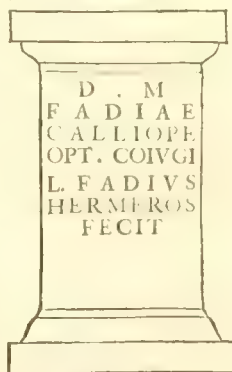 D . M
FADIAE
CALLIOPE
OPT. COIVGI
L. FADIVS
HERMEROS
FECIT